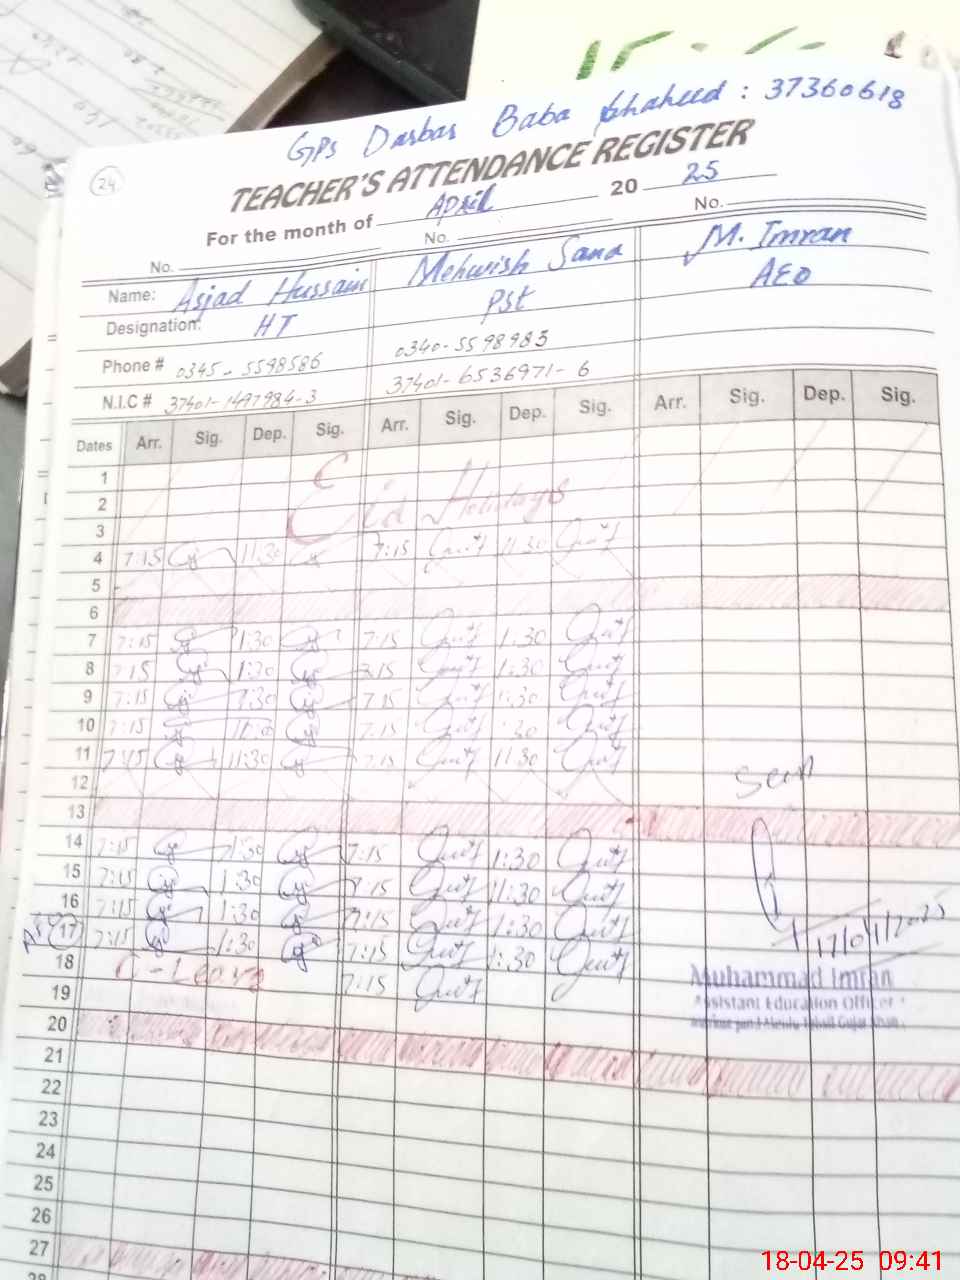 GPS Darbar Baba Shaheed : 37360618
24
TEACHER'S ATTENDANCE REGISTER
For the month of April 2025
No. No. No.
Name: Asjad Hussain Mehwish Sana M. Imran
Designation: HT PST AEO
Phone # 0345-5598586 0340-5598983
N.I.C # 37401-1497984-3 37401-6536971-6
Dates Arr. Sig. Dep. Sig. Arr. Sig. Dep. Sig. Arr. Sig. Dep. Sig.
1
2 Eid Holidays
3
4 7:15 11:30 7:15 11:30
5
6
7 7:15 1:30 7:15 1:30
8 7:15 1:30 7:15 1:30
9 7:15 1:30 7:15 1:30
10 7:15 1:30 7:15 1:30
11 7:15 11:30 7:15 11:30
12
Seen
13
14 7:15 1:30 7:15 1:30
15 7:15 1:30 7:15 11:30
16 7:15 1:30 7:15 1:30
17 7:15 1:30 7:15 1:30
18 C-Leave 7:15
Muhammad Imran
Assistant Education Officer
19
20
21
22
23
24
25
26
27
28
18-04-25 09:41